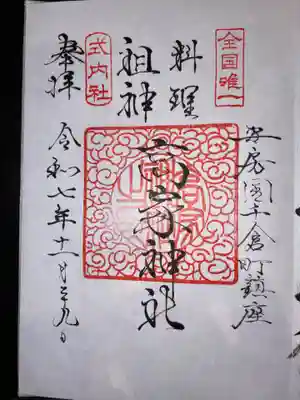 全国唯一
安房国千倉町鎮座
料理
祖神
高家神社
式内社
奉拝
令和七年十一月二九日